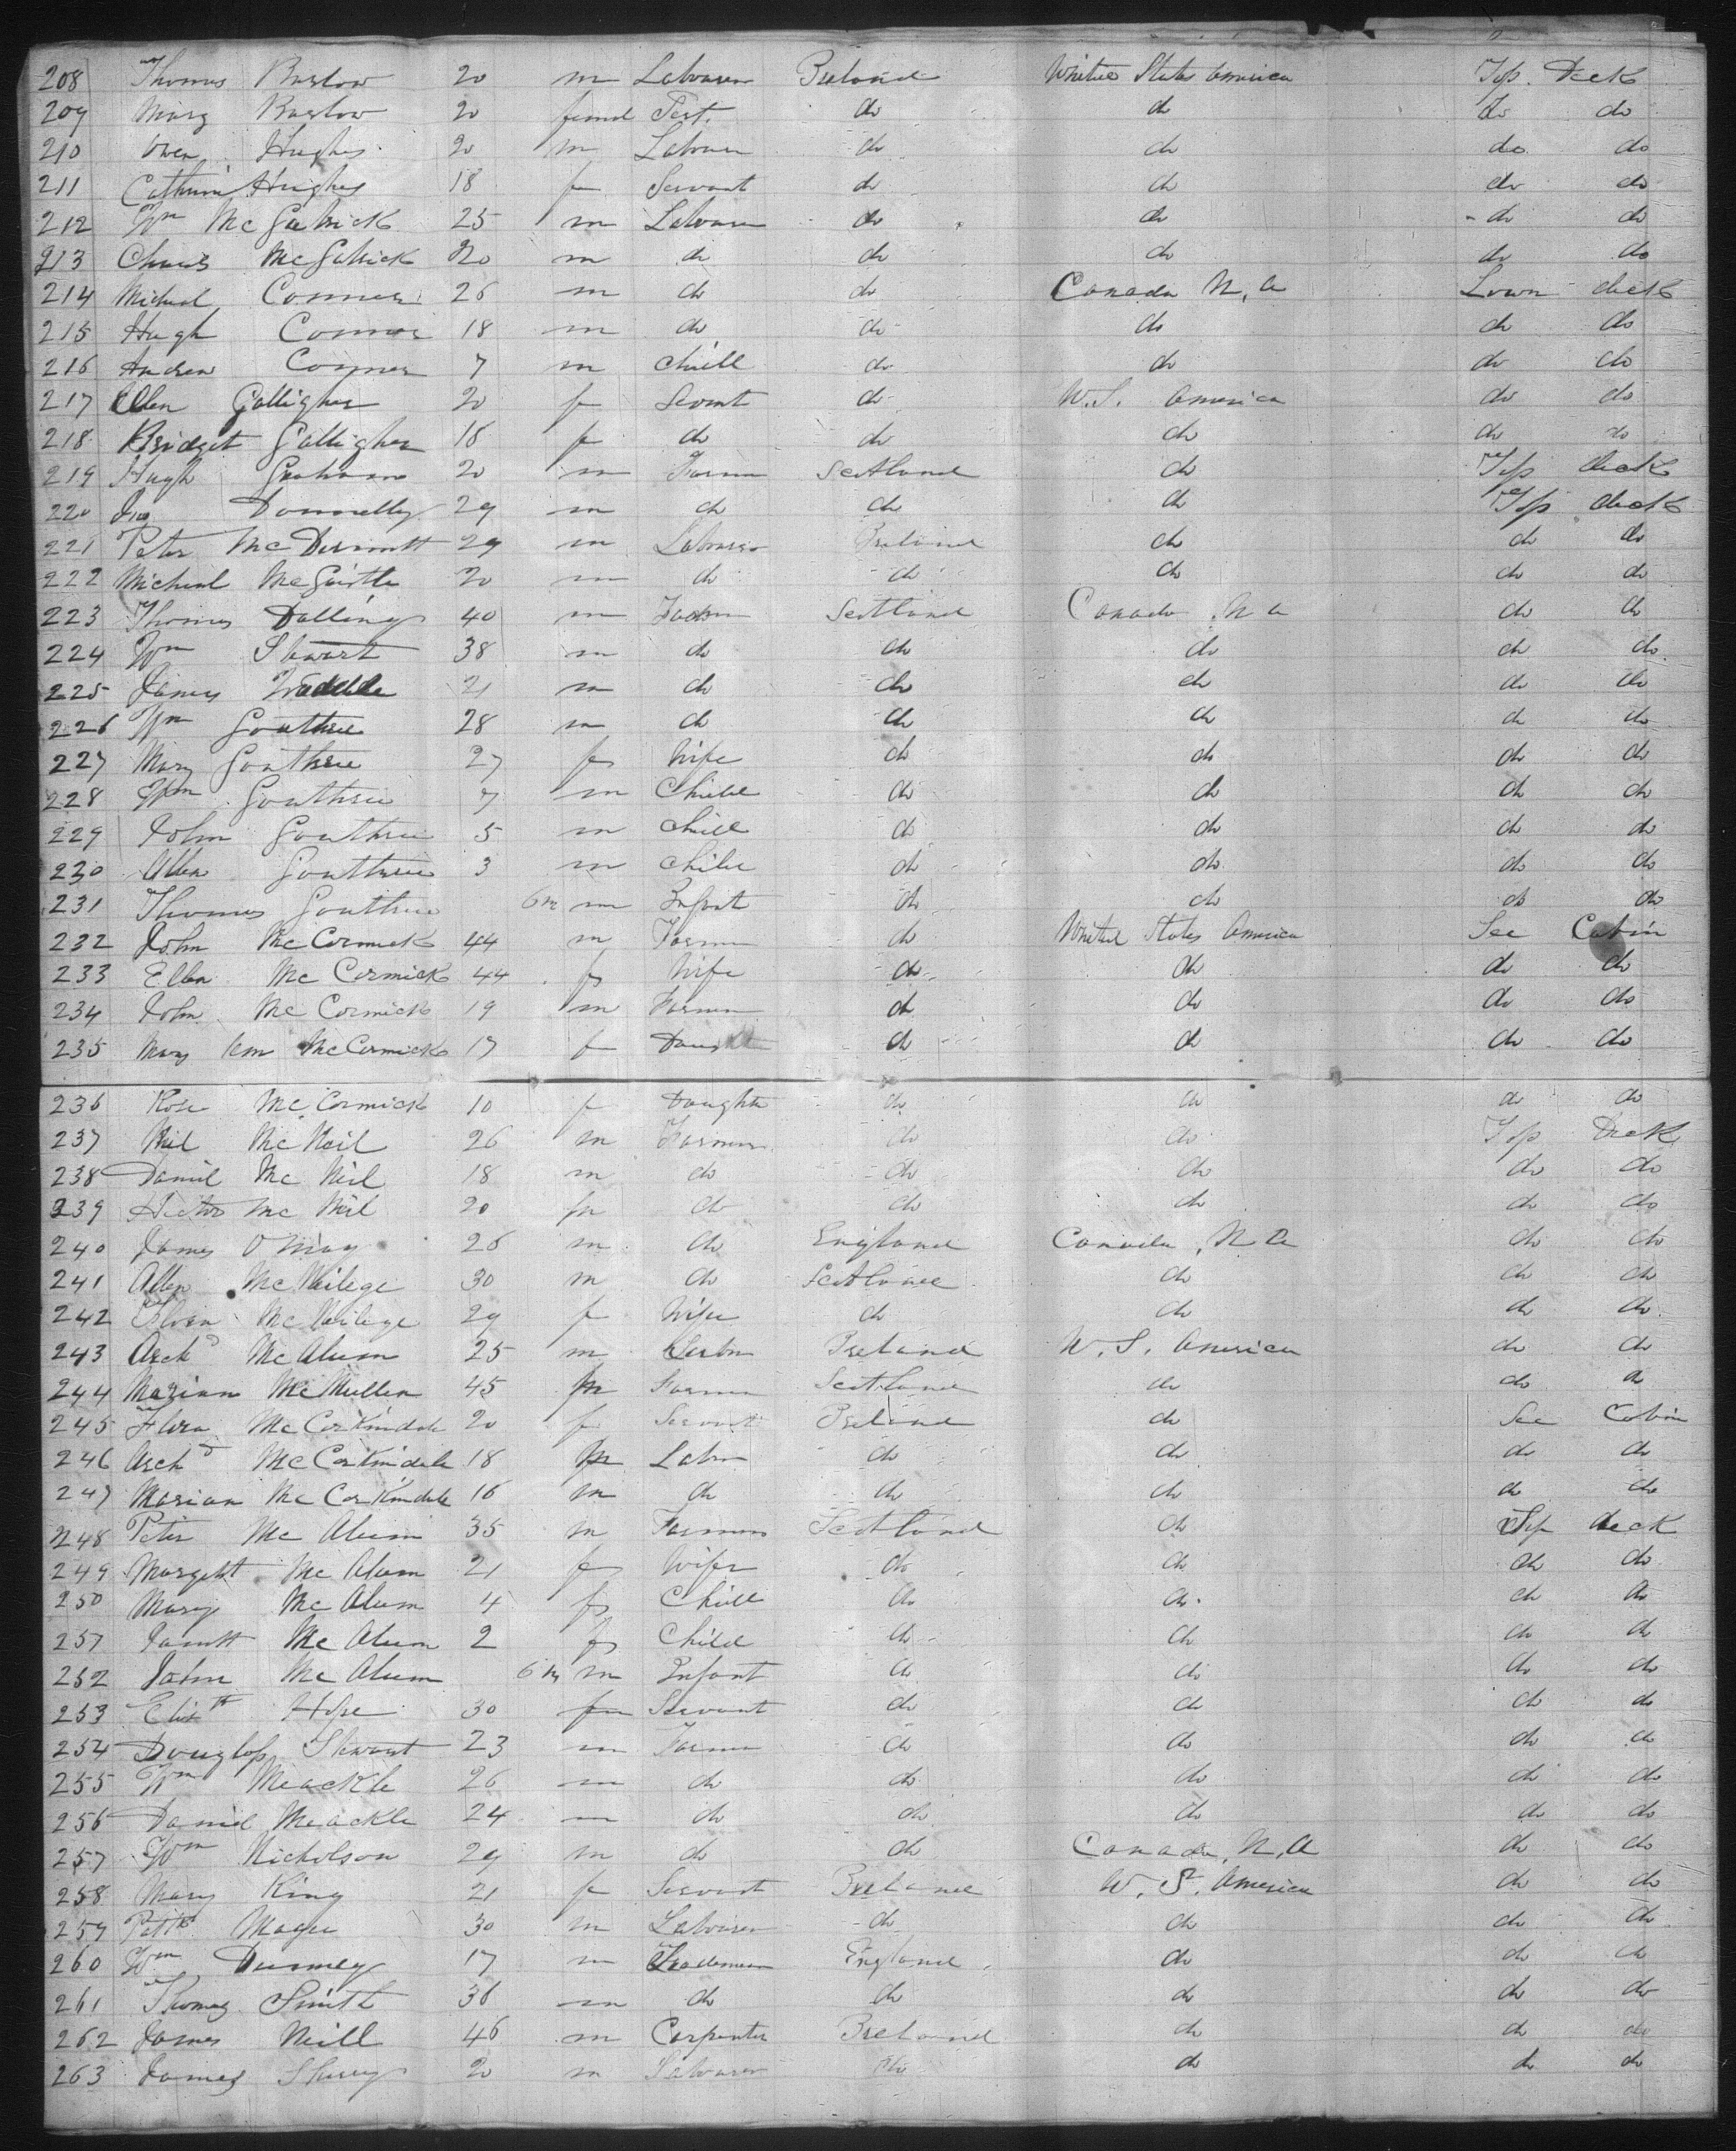 208 Thomas Barlow 20 m Labourer Ireland United States America Top Deck
209 Mary Barlow 20 femal do do do do
210 Owen Hughes 20 m Labourer do do do do
211 Cathrine Hughes 18 f Servant do do do do
212 Wm McGetrick 25 m Labourer do do do do
213 McGettrick 20 m do do do do do
214 Michael Connor 26 m do do Canada N, A Lower deck
215 Hugh Connor 18 m do do do do do
216 Andrew Connor 7 m child do do do do
217 Ellen Galligher 20 f Servnt do U.S. America do do
218 Bridget Galligher 18 f do do do do do
219 Hugh Graham 20 m Farmer Scotland do Top deck
220 Donnelly 29 m do do do Top deck
221 Peter McDermott 29 m Labourer Ireland do do do
222 Micheal 20 m do do do do do
223 Thomas Dalling 40 m Farmer Scotland Canada N A do do
224 Wm Stewart 38 m do do do do do
225 James 21 m do do do do do
226 Wm Gouthrie 28 m do do do do do
227 Mary Gouthrie 27 f Wife do do do do
228 Wm Gouthrie 7 m Child do do do do
229 John Gouthrie 5 m Child do do do do
230 Allen Gouthrie 3 m Child do do do do
231 Thomas Gouthrie 6m m Infant do do do do
232 John McCormick 44 m Farmer do United States America Sec Cabin
233 Ellen McCormick 44 f Wife do do do do
234 John McCormick 19 m Farmer do do do do
235 Mary Ann McCormick 17 f Daught do do do do
236 Rose McCormick 10 f Daughter do do do do
237 Neil McNeil 26 m Farmer do do Top Deck
238 Daniel McNeil 18 m do do do do do
239 Hector McNeil 20 m do do do do do
240 James O'May 26 m do England Canada, N A do do
241 Allen McNeilege 30 m do Scotland do do do
242 Flora McNeilege 29 f Wife do do do do
243 Archd McAlum 25 m Ireland U.S. America do do
244 Marian McMullen 45 Farmer Scotland do do do
245 Flora McCorkindale 20 f Servant Ireland do Sec Cabin
246 Archd McCorkindale 18 m Labr do do do do
247 Marian McCorkindale 16 m do do do do do
248 Peter McAlum 35 m Farmer Scotland do Top deck
249 Margett McAlum 21 f Wife do do do do
250 Mary McAlum 4 f Child do do do do
251 Janett McAlum 2 f Child do do do do
252 John McAlum 6m m Infant do do do do
253 Elizth Hope 30 f Servant do do do do
254 Douglass Stewart 23 m Farmer do do do do
255 Wm Meackle 26 m do do do do do
256 Daniel Meackle 24 m do do do do do
257 Wm Nicholson 29 m do do Canada, N, A do do
258 Mary King 21 f Servant Ireland U.S. America do do
259 Patk Magee 30 m Labourer do do do do
260 Wm 17 m Tradesman England do do do
261 Thomas Smith 36 m do do do do do
262 James Neill 46 m Carpenter Ireland do do do
263 James 20 m Labourer do do do do